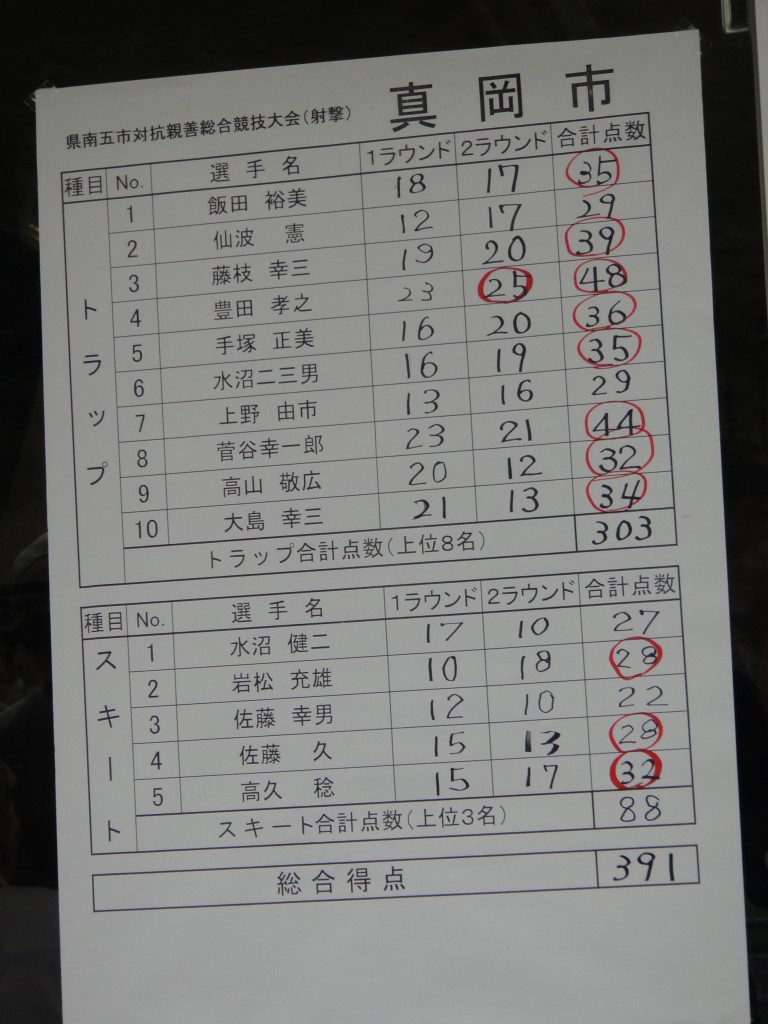 県南五市対抗親善総合競技大会(射撃) 真岡市
種目 No. 選手名 1ラウンド 2ラウンド 合計点数
トラップ
1 飯田 裕美 18 17 35
2 仙波 憲 12 17 29
3 藤枝 幸三 19 20 39
4 豊田 孝之 23 25 48
5 手塚 正美 16 20 36
6 水沼二三男 16 19 35
7 上野 由市 13 16 29
8 菅谷幸一郎 23 21 44
9 高山 敬広 20 12 32
10 大島 幸三 21 13 34
トラップ合計点数(上位8名) 303
種目 No. 選手名 1ラウンド 2ラウンド 合計点数
スキート
1 水沼 健二 17 10 27
2 岩松 充雄 10 18 28
3 佐藤 幸男 12 10 22
4 佐藤 久 15 13 28
5 高久 稔 15 17 32
スキート合計点数(上位3名) 88
総合得点 391